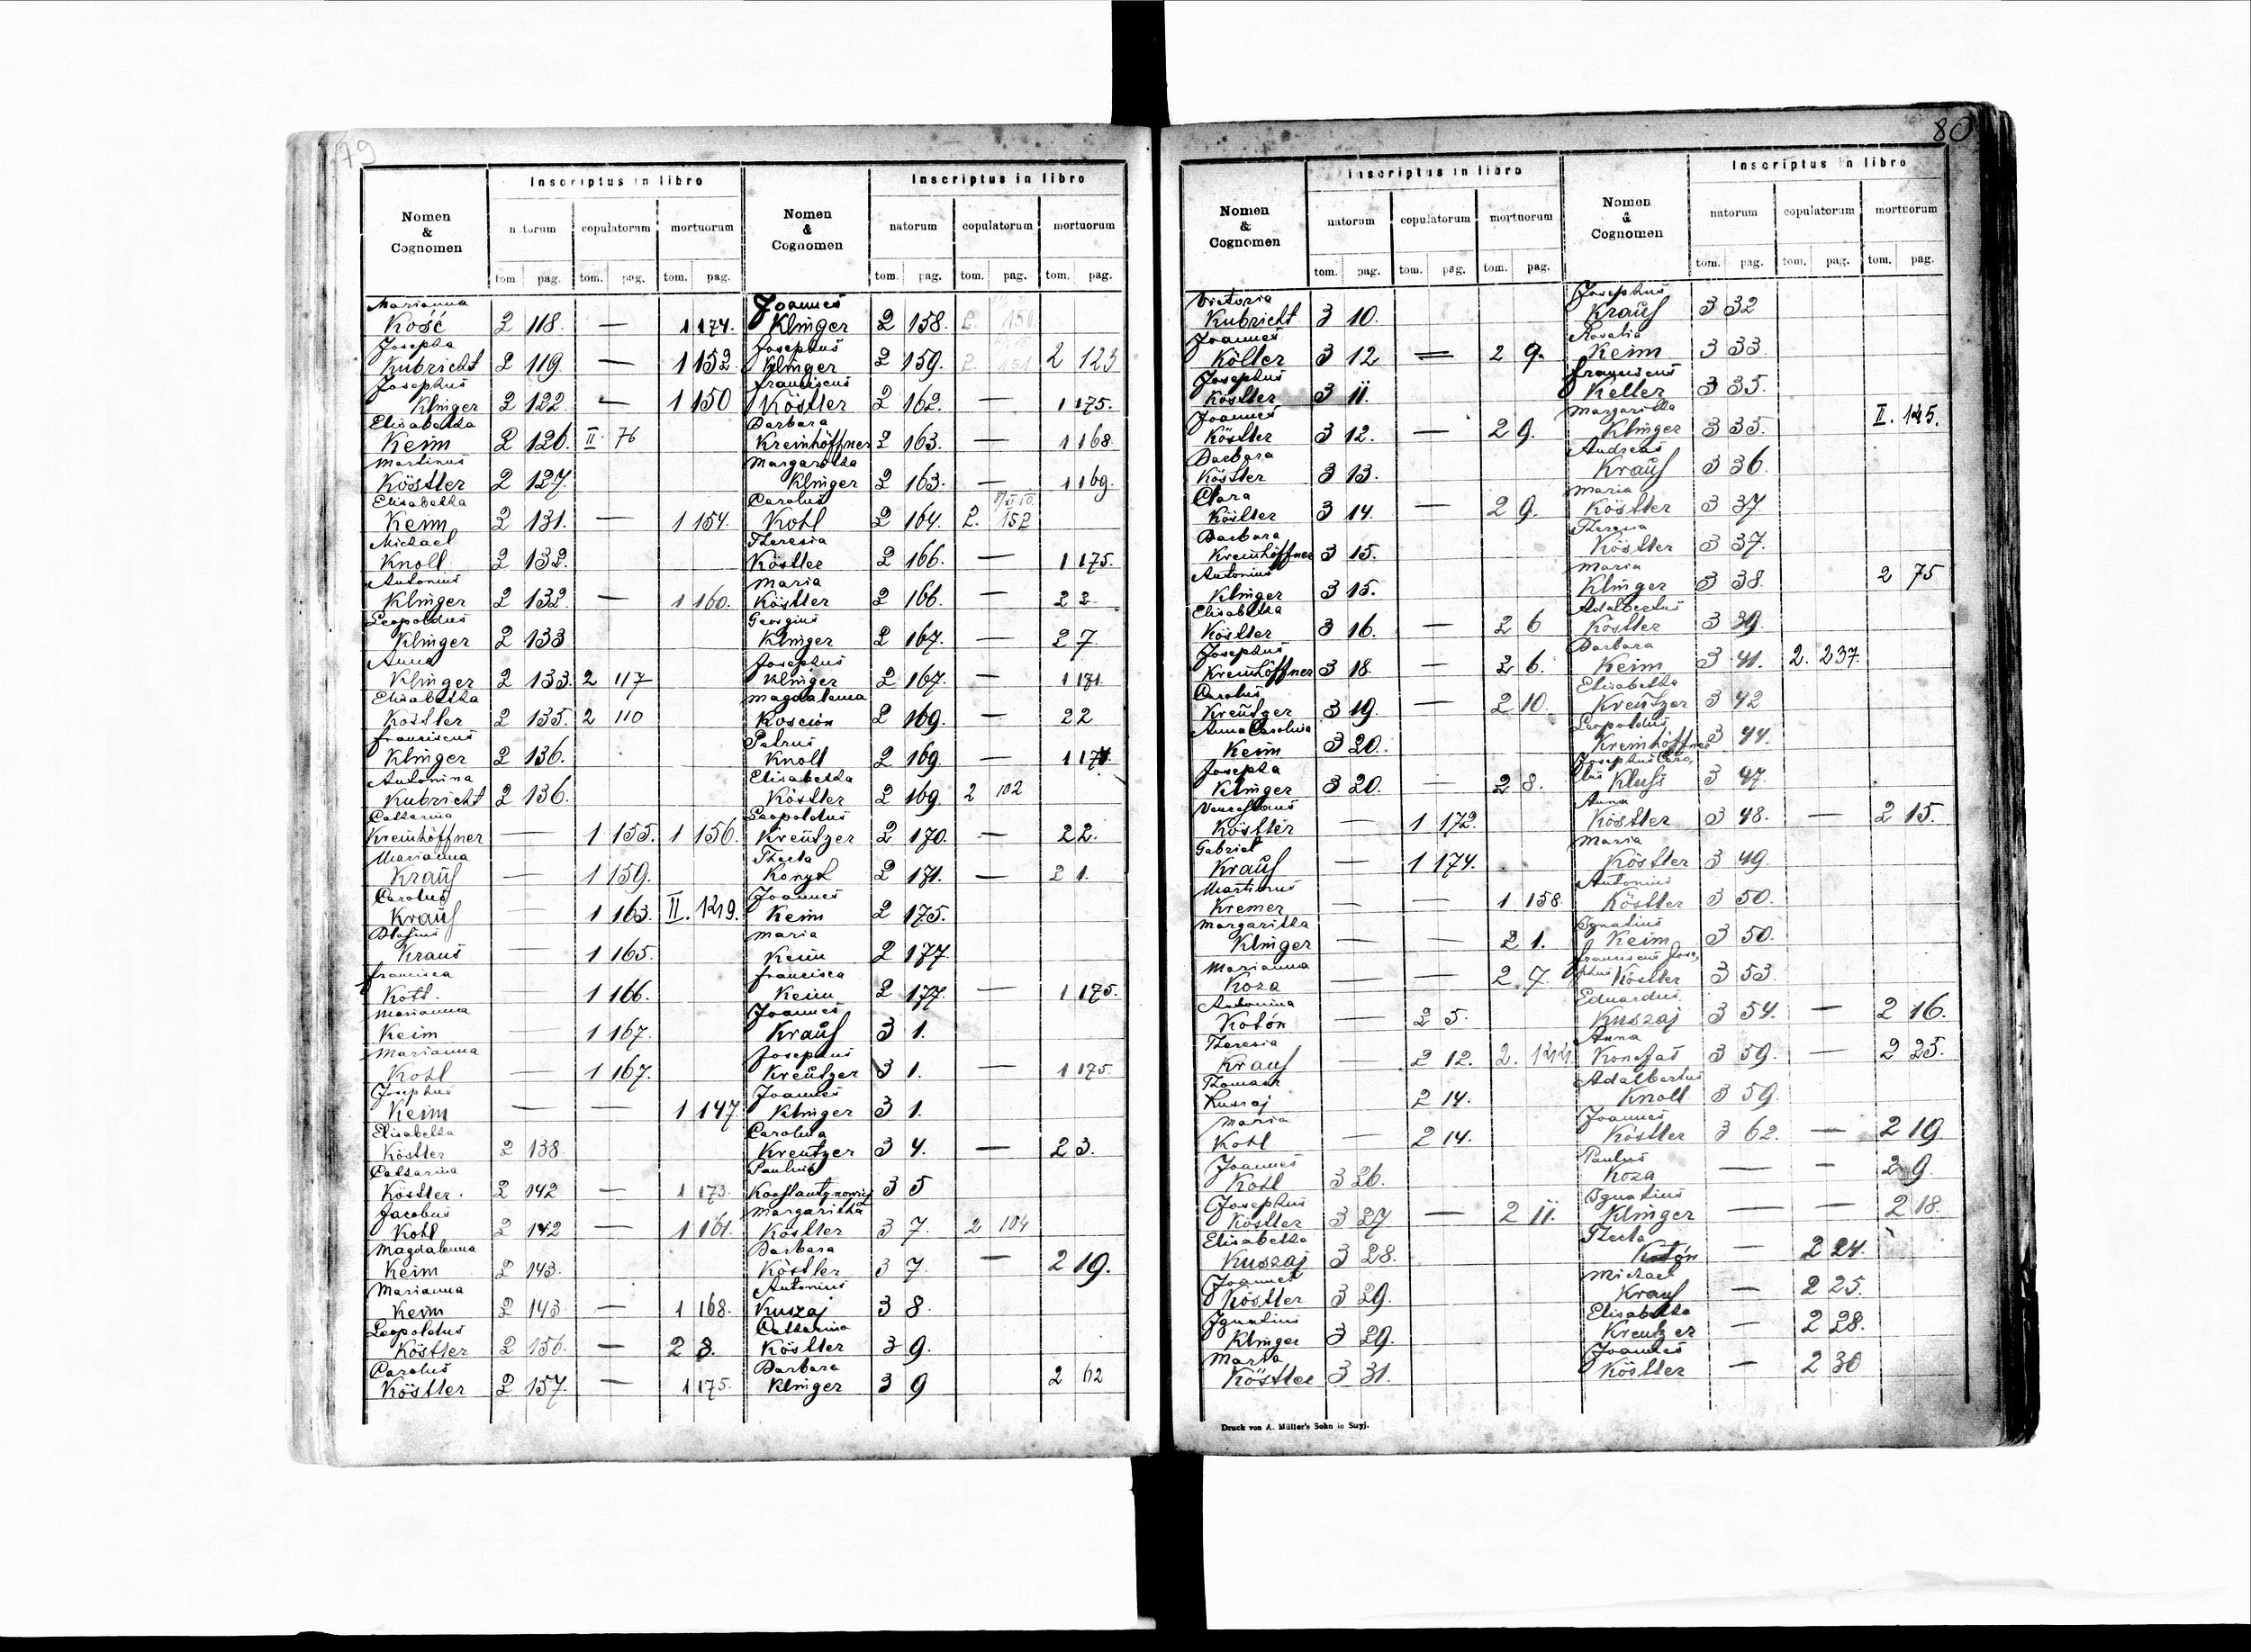 79
Inscriptus in libro
Nomen & Cognomen
natorum copulatorum mortuorum
tom. pag. tom. pag. tom. pag.
Marianna
Kość 2 118. — 1 174.
Josepha
Kubricht 2 119. — 1 152.
Josephus
Klinger 2 122. — 1 150
Elisabetha
Keim 2 126. II. 76
Martinus
Köstler 2 127.
Elisabetha
Keim 2 131. — 1 154.
Michael
Knoll 2 132.
Antonius
Klinger 2 132. — 1 160.
Leopoldus
Klinger 2 133
Anna
Klinger 2 133. 2 117
Elisabetha
Köstler 2 135. 2 110
Franciscus
Klinger 2 136.
Antonina
Kubricht 2 136.
Catharina
Kreinhöffner — 1 155. 1 156.
Marianna
Krauß — 1 159.
Carolus
Krauß — 1 163. II. 129.
Blasius
Kraus — 1 165.
Francisca
Kotl. — 1 166.
Marianna
Keim — 1 167.
Marianna
Kohl — 1 167.
Josephus
Keim — — 1 147
Elisabetha
Köstler 2 138.
Catharina
Köstler. 2 142 — 1 173.
Jacobus
Kohl 2 142 — 1 161.
Magdalenna
Keim 2 143.
Marianna
Keim 2 143 — 1 168.
Leopoldus
Köstler 2 156. — 2 3.
Carolus
Köstler 2 157. — 1 175.
Inscriptus in libro
Nomen & Cognomen
natorum copulatorum mortuorum
tom. pag. tom. pag. tom. pag.
Joannes
Klinger 2 158. 2. 150.
Josephus
Klinger 2 159. 2. 151 2 123
Franciscus
Köstler 2 162. — 1 175.
Barbara
Kreinhöffner 2 163. — 1 168.
Margaritha
Klinger 2 163. — 1 169.
Carolus
Kohl 2 164. 2. 152
Theresia
Köstler 2 166. — 1 175.
Maria
Köstler 2 166. — 2 2
Georgius
Klinger 2 167. — 2 7.
Josephus
Klinger 2 167. — 1 171.
Magdalenna
Koscion 2 169. — 2 2
Petrus
Knoll 2 169. — 1 174.
Elisabetha
Köstler 2 169. 2 102
Leopoldus
Kreützer 2 170. — 2 2.
Thecla
Konyk 2 171. — 2 1.
Joannes
Keim 2 175.
Maria
Keim 2 177.
Francisca
Keim 2 177. — 1 175.
Joannes
Krauß 3 1.
Josephus
Kreützer 3 1. — 1 175.
Joannes
Klinger 3 1.
Carolina
Kreutzer 3 4. — 2 3.
Paulina
Konstantynowicz 3 5
Margaritha
Köstler 3 7. 2 104
Barbara
Köstler 3 7. — 2 19.
Antonius
Kuszaj 3 8.
Catharina
Köstler 3 9.
Barbara
Klinger 3 9 2 62
80
Inscriptus in libro
Nomen & Cognomen
natorum copulatorum mortuorum
tom. pag. tom. pag. tom. pag.
Victoria
Kubricht 3 10.
Joannes
Köller 3 12 — 2 9.
Josephus
Köstler 3 11.
Joannes
Köstler 3 12. — 2 9.
Barbara
Köstler 3 13.
Clara
Köstler 3 14. — 2 9.
Barbara
Kreinhöffner 3 15.
Antonius
Klinger 3 15.
Elisabetha
Köstler 3 16. — 2 6
Josephus
Kreinhöffner 3 18. — 2 6.
Carolus
Kreützer 3 19. — 2 10.
Anna Carolina
Keim 3 20.
Josepha
Klinger 3 20. — 2 8.
Venceslaus
Köstler — 1 172.
Gabriel
Krauß — 1 174.
Martinus
Kremer — — 1 158.
Margaritha
Klinger — — 2 1.
Marianna
Koza — — 2 7.
Antonina
Kotón — 2 5.
Theresia
Krauß — 2 12. 2. 122
Thomas
Kuszaj 2 14.
Maria
Kohl — 2 14.
Joannes
Kohl 3 26.
Josephus
Köstler 3 27 — 2 11.
Elisabetha
Kuszaj 3 28.
Joannes
Köstler 3 29.
Ignatius
Klinger 3 29.
Maria
Köstler 3 31.
Inscriptus in libro
Nomen & Cognomen
natorum copulatorum mortuorum
tom. pag. tom. pag. tom. pag.
Josephus
Krauß 3 32
Rosalia
Keim 3 33.
Franciscus
Keller 3 35.
Margaritha
Klinger 3 35. II. 145.
Andreas
Krauß 3 36.
Maria
Köstler 3 37.
Theresia
Köstler 3 37.
Maria
Klinger 3 38. 2 75
Adalbertus
Köstler 3 39.
Barbara
Keim 3 41. 2. 237.
Elisabetha
Kreützer 3 42
Leopoldus
Kreinhöffner 3 44.
Josephus Caro,
lus Kluß 3 47.
Anna
Köstler 3 48. — 2 15.
Maria
Köstler 3 49.
Antonius
Köstler 3 50.
Ignatius
Keim 3 50.
Franciscus Jose,
phus Köstler 3 53.
Eduardus
Kuszaj 3 54. — 2 16.
Anna
3 59. — 2 25.
Adalbertus
Knoll 3 59.
Joannes
Köstler 3 62. — 2 19
Paulus
Koza — — 2 9.
Ignatius
Klinger — — 2 18.
Thecla
Kotón — 2 24.
Michael
Krauß — 2 25.
Elisabetha
Kreutzer — 2 28.
Joannes
Köstler — 2 30
Druck von A. Müller's Sohn in Stryj.